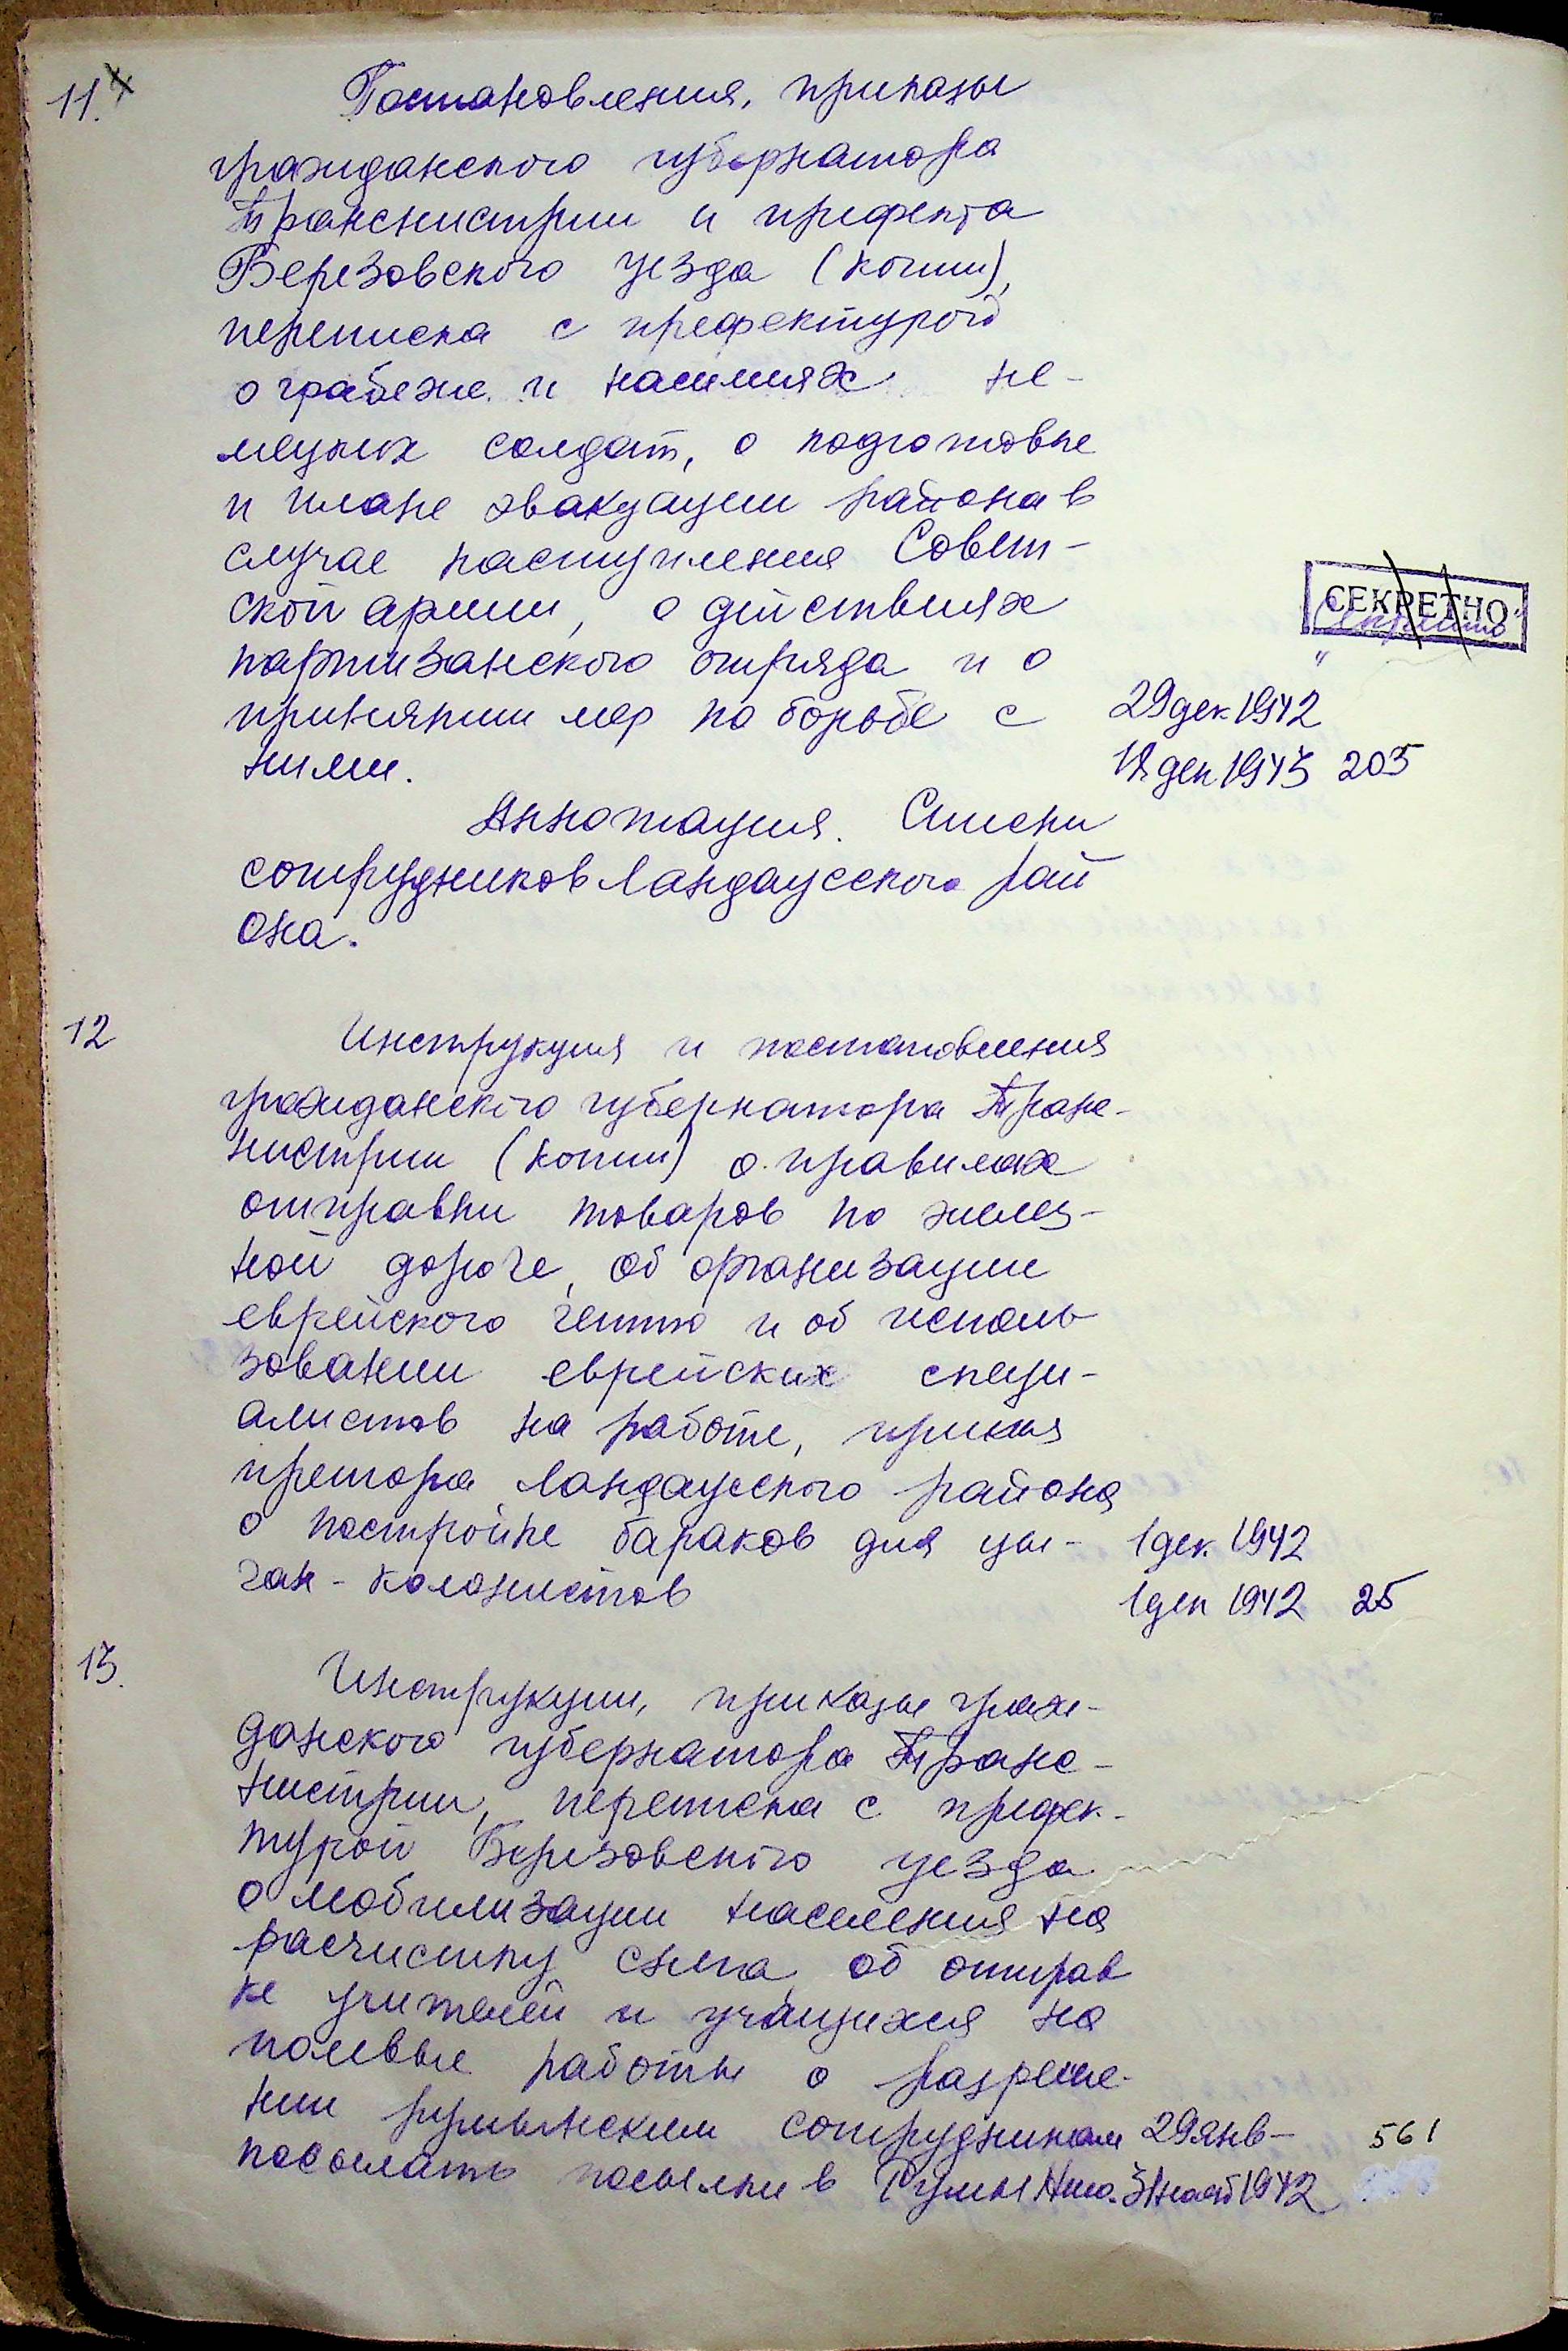 11.
Постановления, приказы
гражданского губернатора
Транснистрии и префекта
Березовского уезда (копии),
переписка с префектурой
о грабеже и насилиях не-
мецких солдат, о подготовке
и плане эвакуации района в
случае наступления Совет-
ской армии, о действиях
СЕКРЕТНО
Секретно
партизанского отряда и о
принятии мер по борьбе с 29 дек 1942
ними. дек 1943 205
Аннотация. Списки
сотрудников Ландауского рай
она.
12 Инструкция и постановления
гражданского губернатора Транс-
нистрии (копии) о правилах
отправки товаров по желез-
ной дороге, об организации
еврейского гетто и об исполь
зовании еврейских специ-
алистов на работе,
претора Ландауского района
о постройке бараков для цы- 1 дек. 1942
ган-колонистов 1 дек 1942 25
13. Инструкции, приказы граж-
данского губернатора Транс-
нистрии, переписка с префек-
турой Березовского уезда
о мобилизации населения на
расчистку снега, об отправ
ке учителей и учащихся на
полевые работы о разреше-
нии румынским сотрудникам 29 янв- 561
посылать посылки в Румынию. 1942